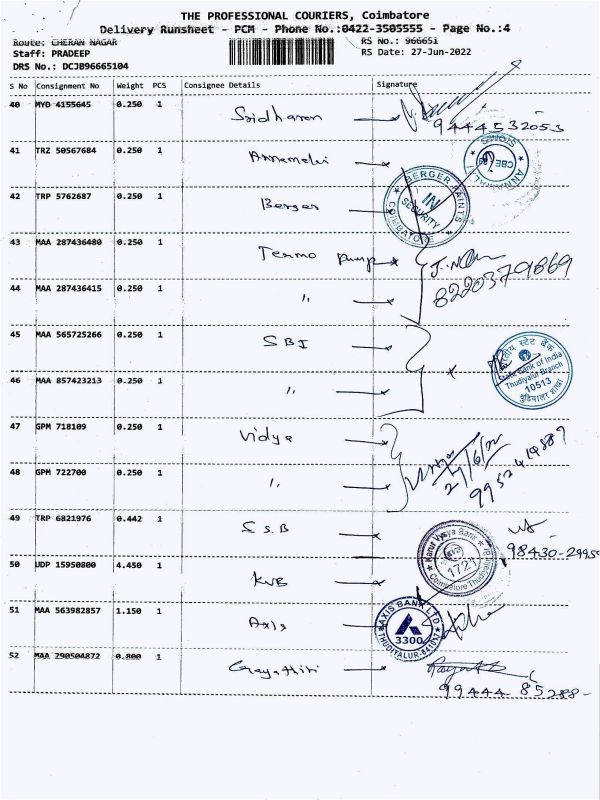 THE PROFESSIONAL COURIERS, Coimbatore
Delivery Runsheet - PCM - Phone No.:0422-3505555 - Page No.:4
Route: CHERAN NAGAR
RS No.: 966651
Staff: PRADEEP
RS Date: 27-Jun-2022
DRS No.: DCJB96665104
S No Consignment No Weight PCS Consignee Details Signature
40 MYD 4155645 0.250 1 Sridharan
9444532053
41 TRZ 50567684 0.250 1 Annamalai
ANNAMALAI STORES CBE
42 TRP 5762687 0.250 1 Berger
BERGER PAINTS IN SECURITY COIMBATORE
43 MAA 287436480 0.250 1 Termo pump
8220379869
44 MAA 287436415 0.250 1 "
45 MAA 565725266 0.250 1 SBI
भारतीय स्टेट बैंक
State Bank of India
Thudiyalur Branch
10513
46 MAA 857423213 0.250 1 "
47 GPM 718109 0.250 1 Vidya
27/6/22
48 GPM 722700 0.250 1 "
49 TRP 6821976 0.442 1 S S.B
98430-2995
50 UDP 15950800 4.450 1 KVB
Karur Vysya Bank Ltd
1721
Coimbatore Thudiyalur
51 MAA 563982857 1.150 1 Axis
AXIS BANK LTD
3300
THUDIYALUR-641017
52 MAA 290504872 0.800 1 Gayathiri
99444 85288-